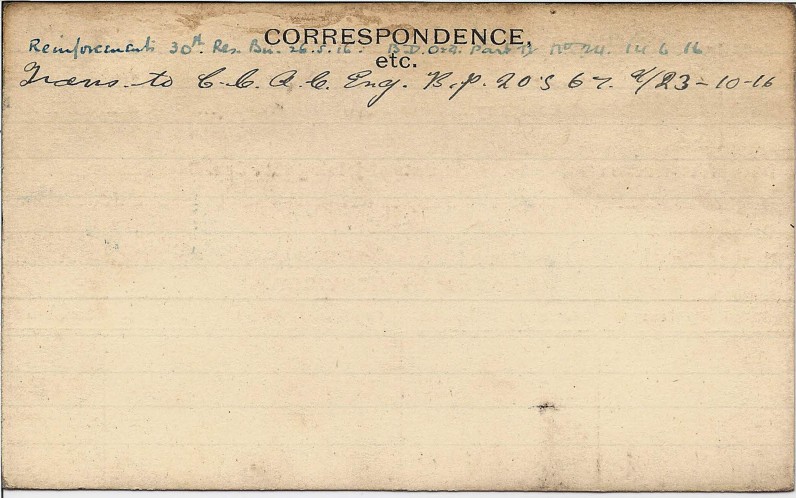 CORRESPONDENCE,
Reinforcements 30th Res. Bn. 26.5.16. B.D. Ord. Part II No 24. 14 6 16
etc.
Trans. to C.C.A.C. Eng. B.p. 20567. 4/23-10-16